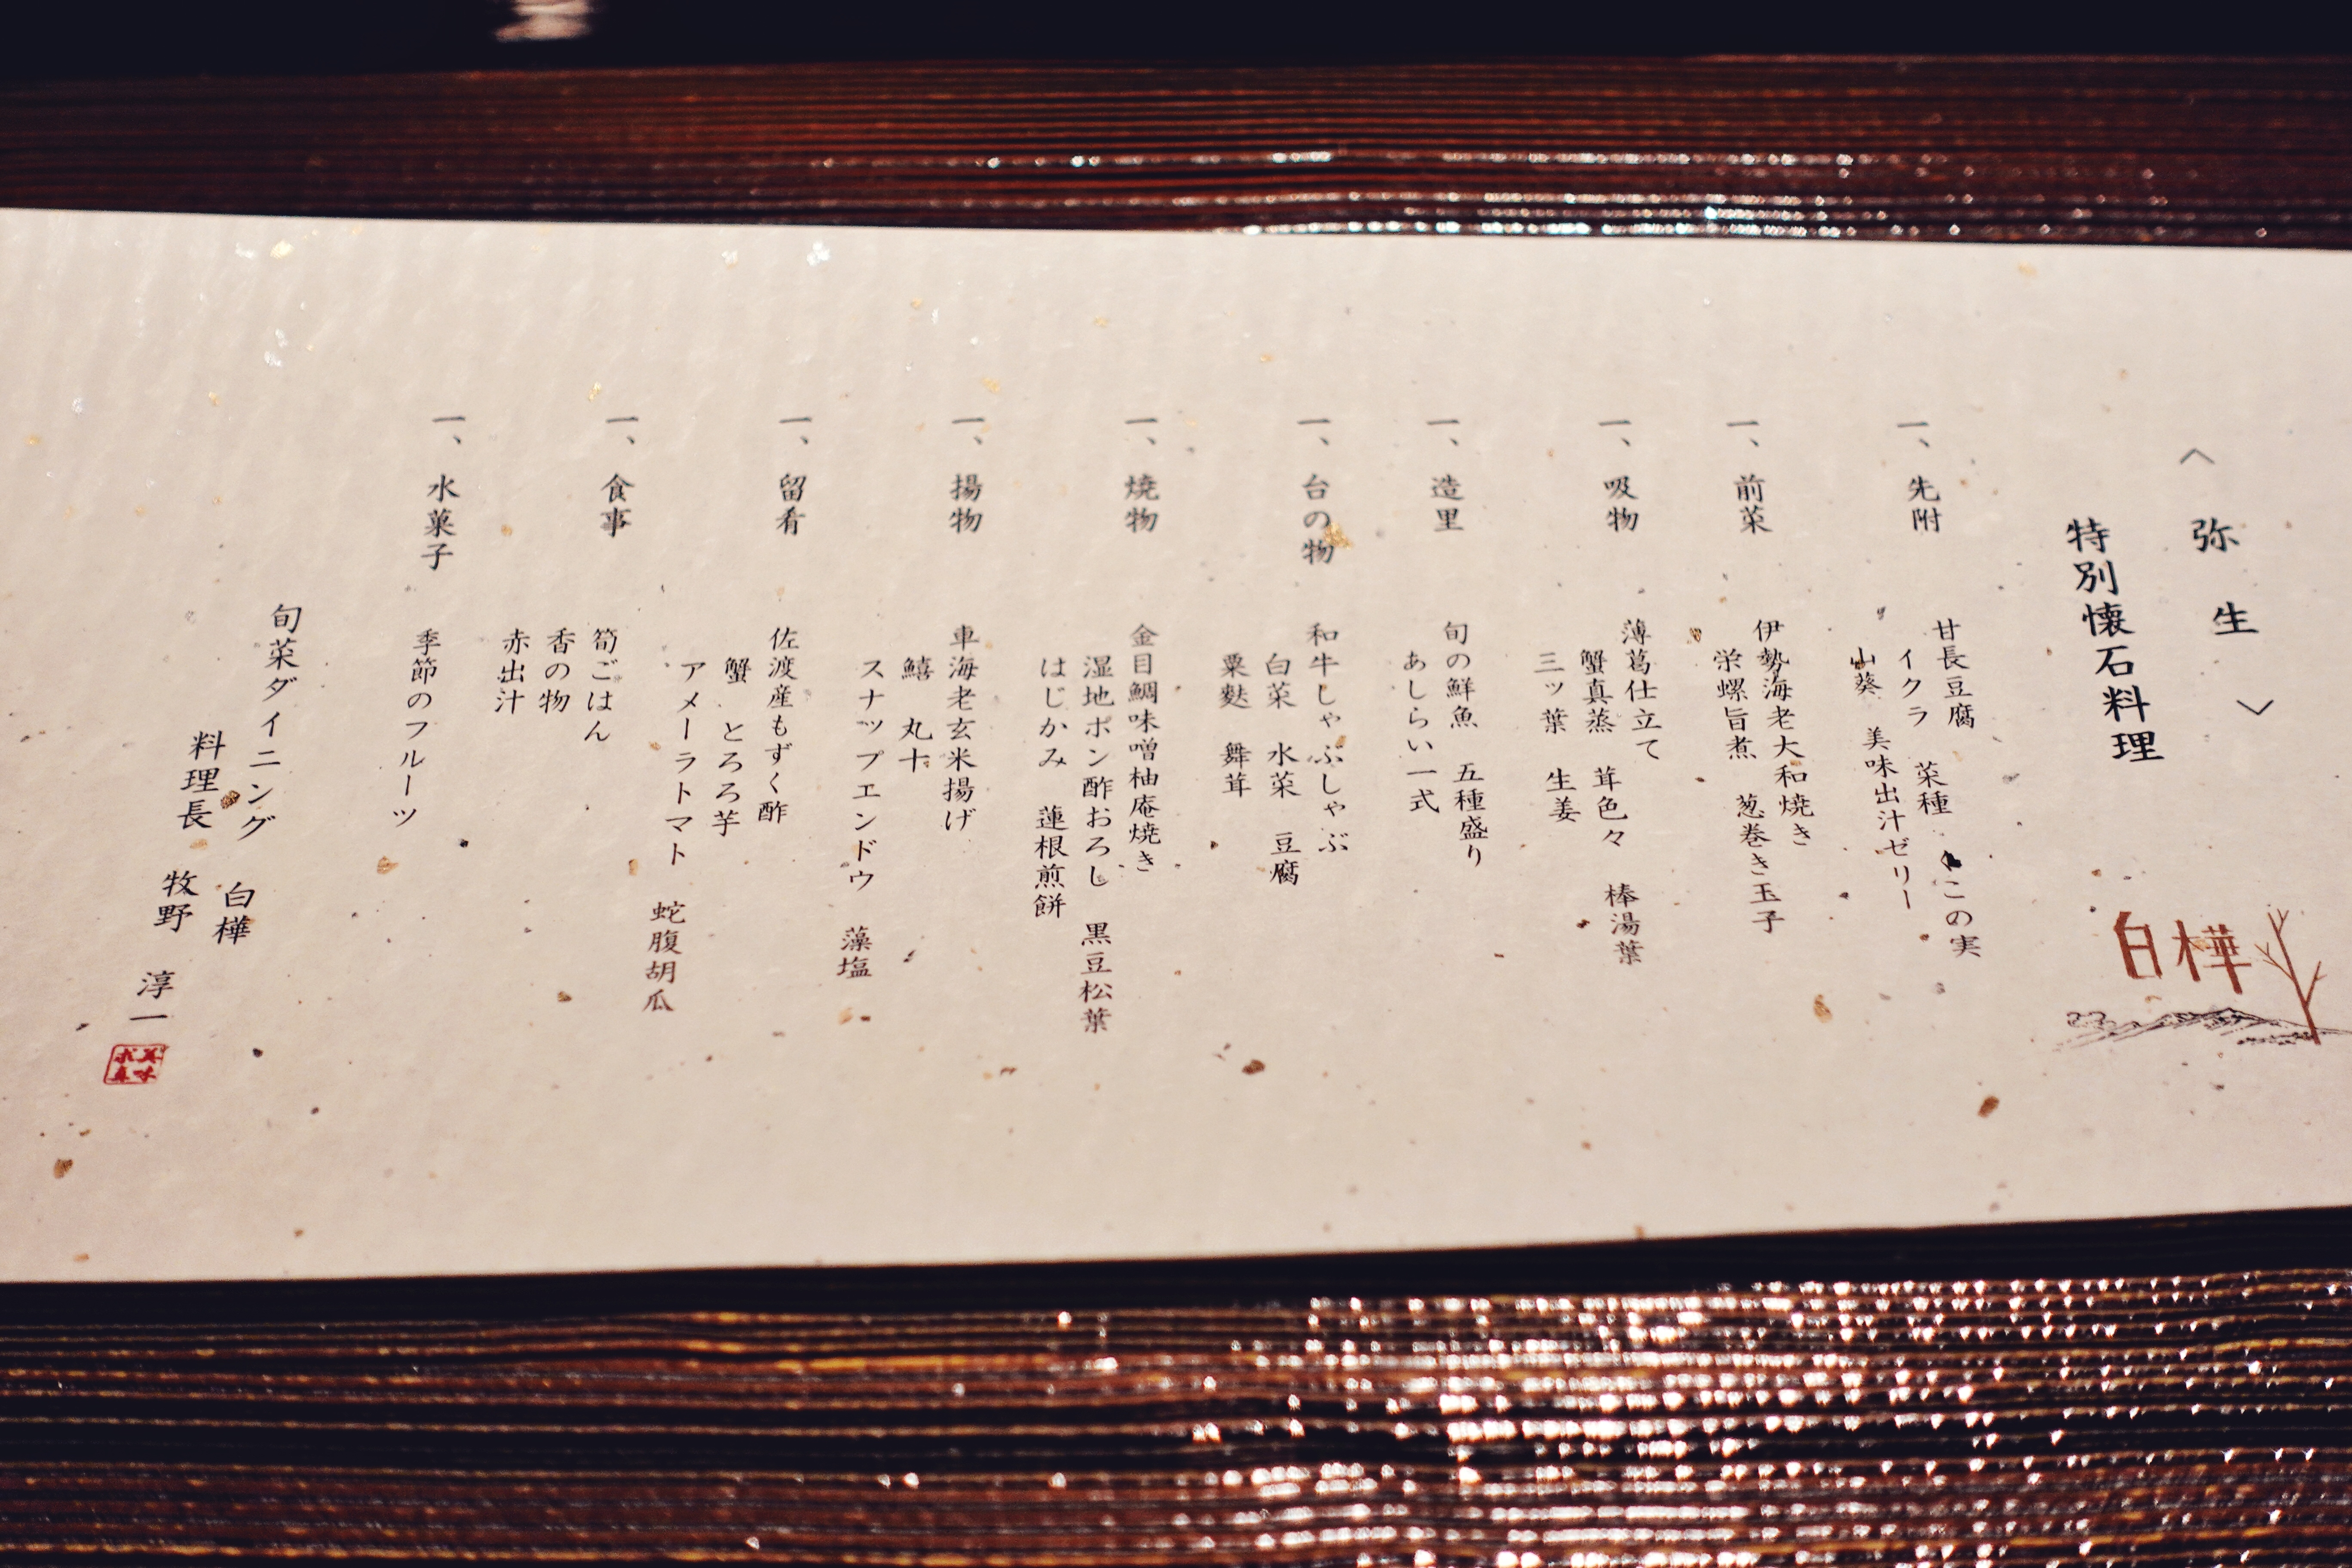 〈弥生〉
特別懐石料理
白樺
一、先附
甘長豆腐
イクラ 菜種 きこの実
山葵 美味出汁ゼリー
一、前菜
伊勢海老大和焼き
栄螺旨煮 葱巻き玉子
一、吸物
薄葛仕立て
蟹真蒸 茸色々 棒湯葉
三ッ葉 生姜
一、造里
旬の鮮魚 五種盛り
あしらい一式
一、台の物
和牛しゃぶしゃぶ
白菜 水菜 豆腐
粟麩 舞茸
一、焼物
金目鯛味噌柚庵焼き
湿地ポン酢おろし 黒豆松葉
はじかみ 蓮根煎餅
一、揚物
車海老玄米揚げ
鱚 丸十
スナップエンドウ 藻塩
一、留肴
佐渡産もずく酢
蟹 とろろ芋
アメーラトマト 蛇腹胡瓜
一、食事
筍ごはん
香の物
赤出汁
一、水菓子
季節のフルーツ
旬菜ダイニング 白樺
料理長 牧野 淳一